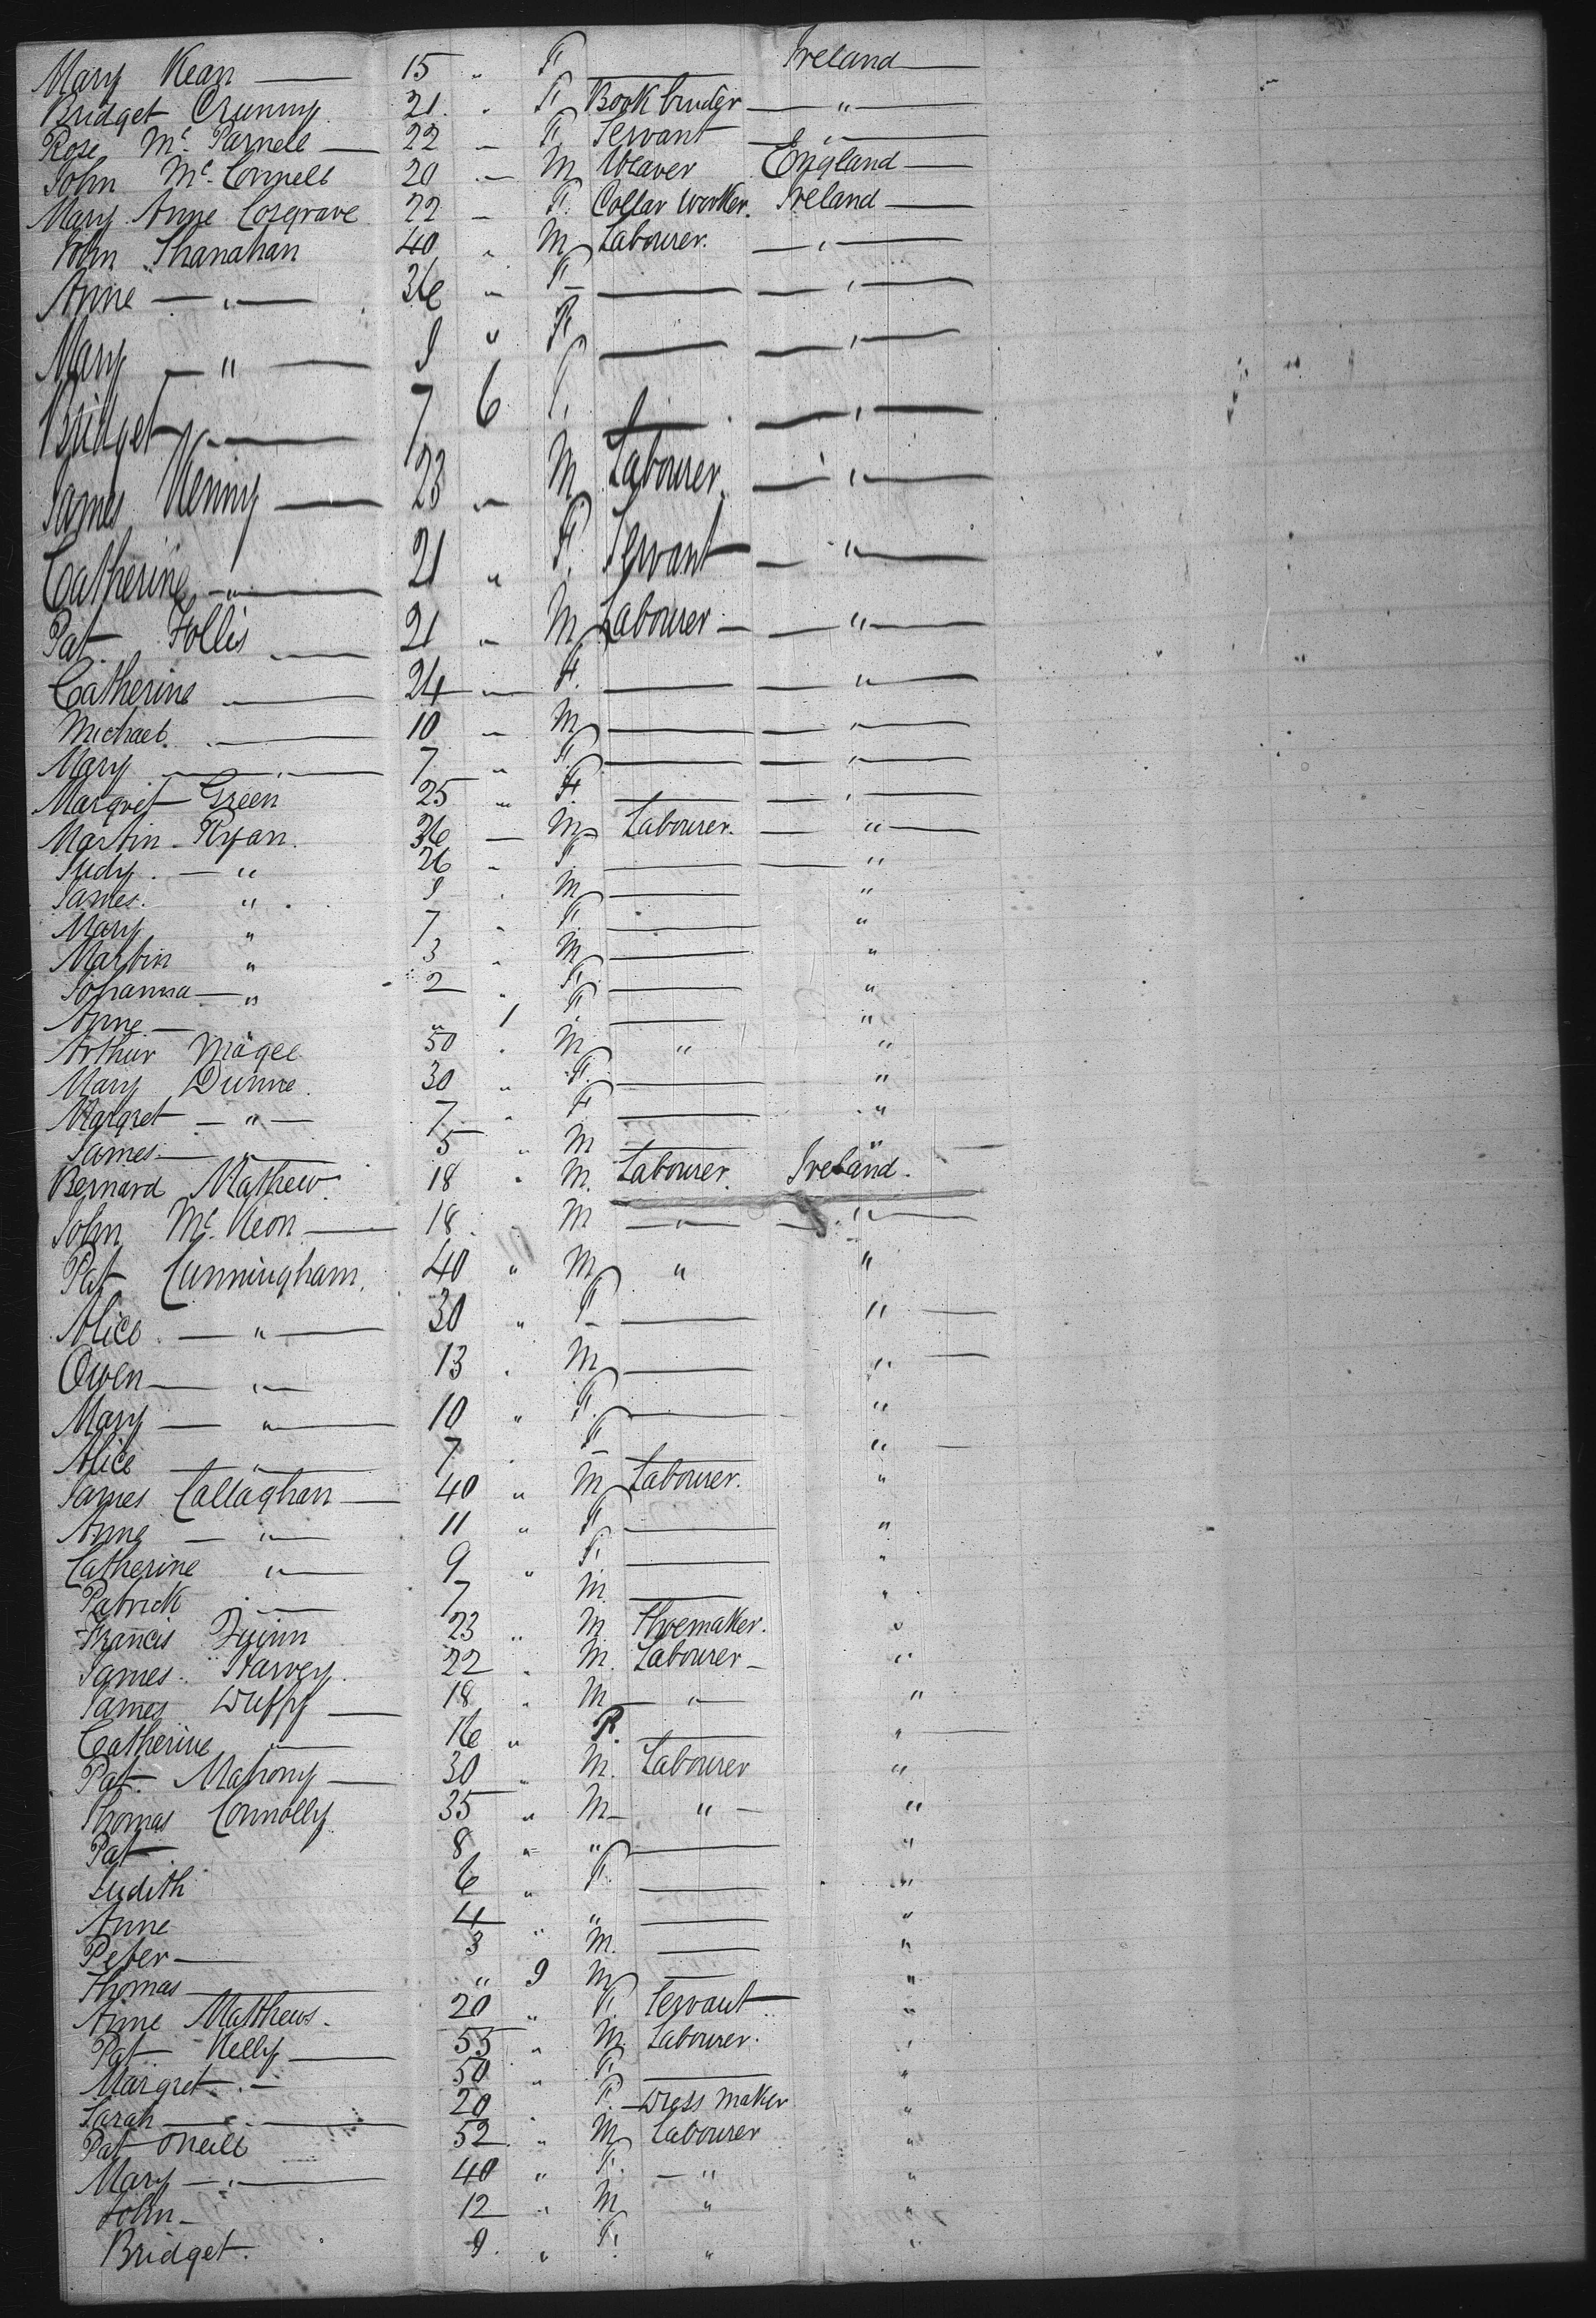 Mary Kean — 15 " F — Ireland —
Bridget Crummy 21 " F Bookbinder — " —
Rose Mc Parnell — 22 " F Servant — " —
John Mc Connell 20 " M Weaver England —
Mary Anne Cosgrave 22 " F. Collar Worker. Ireland —
John Shanahan 40 " M Labourer. — " —
Anne — " — 36 " F — — " —
Mary — " — 9 " F — — " —
Bridget — " — 7 6 " — — " —
James Kenny — 23 " M Labourer. — " —
Catherine — " — 21 " F. Servant — " —
Pat Follis — 21 " M Labourer — — " —
Catherine — 24 " F. — — " —
Michael. — 10 " M — — " —
Mary — " — 7 " F — — " —
Margret Green 25 " F. — — " —
Martin Ryan. 36 — M Labourer. — " —
Judy. — " 26 " F. — — "
James. " 9 " M — "
Mary " 7 " F. — "
Martin " 3 " M — "
Johanna — " 2 " F. — "
Anne — " 1 F — "
Arthur Magee 50 " M " "
Mary Dunne. 30 " F. — "
Margret — " — 7 " F — "
James — " — 5 " M — " —
Bernard Mathew. 18 " M. Labourer. Ireland.
John Mc Keon — 18 " M — " — — " —
Pat Cunningham. 40 " M " "
Alice. — " — 30 " F — " —
Owen — " — 13 " M — " —
Mary — " — 10 " F. — "
Alice — " — 7 " F — " —
James Callaghan — 40 " M Labourer. "
Anne — " — 11 " F — "
Catherine " — 9 " F. — "
Patrick " — 7 M. — "
Francis Quinn 23 " M Shoemaker. "
James Harvey. 22 " M. Labourer — "
James Duffy — 18 " M — " — "
Catherine " — 16 " F. — " —
Pat. Mahony — 30 " M. Labourer "
Thomas Connolly 35 " M — " — "
Pat — 8 " " — "
Judith 6 " F. — "
Anne 4 " " — "
Peter — 3 M. — "
Thomas — " 9 M — "
Anne Matthews. 20 " F. Servant "
Pat Kelly — 55 " M Labourer. "
Margret — " — 50 " F. — "
Sarah — " — 20 " F. — Dress Maker "
Pat ONeill 52 " M Labourer "
Mary — " — 40 " F. — " "
John — 12 " M " "
Bridget. 9. " F. " "